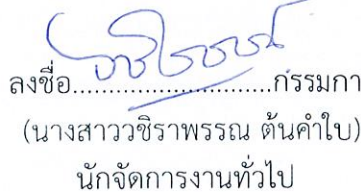 ลงชื่อ...........................กรรมกา
(นางสาววชิราพรรณ ต้นคำใบ)
นักจัดการงานทั่วไป